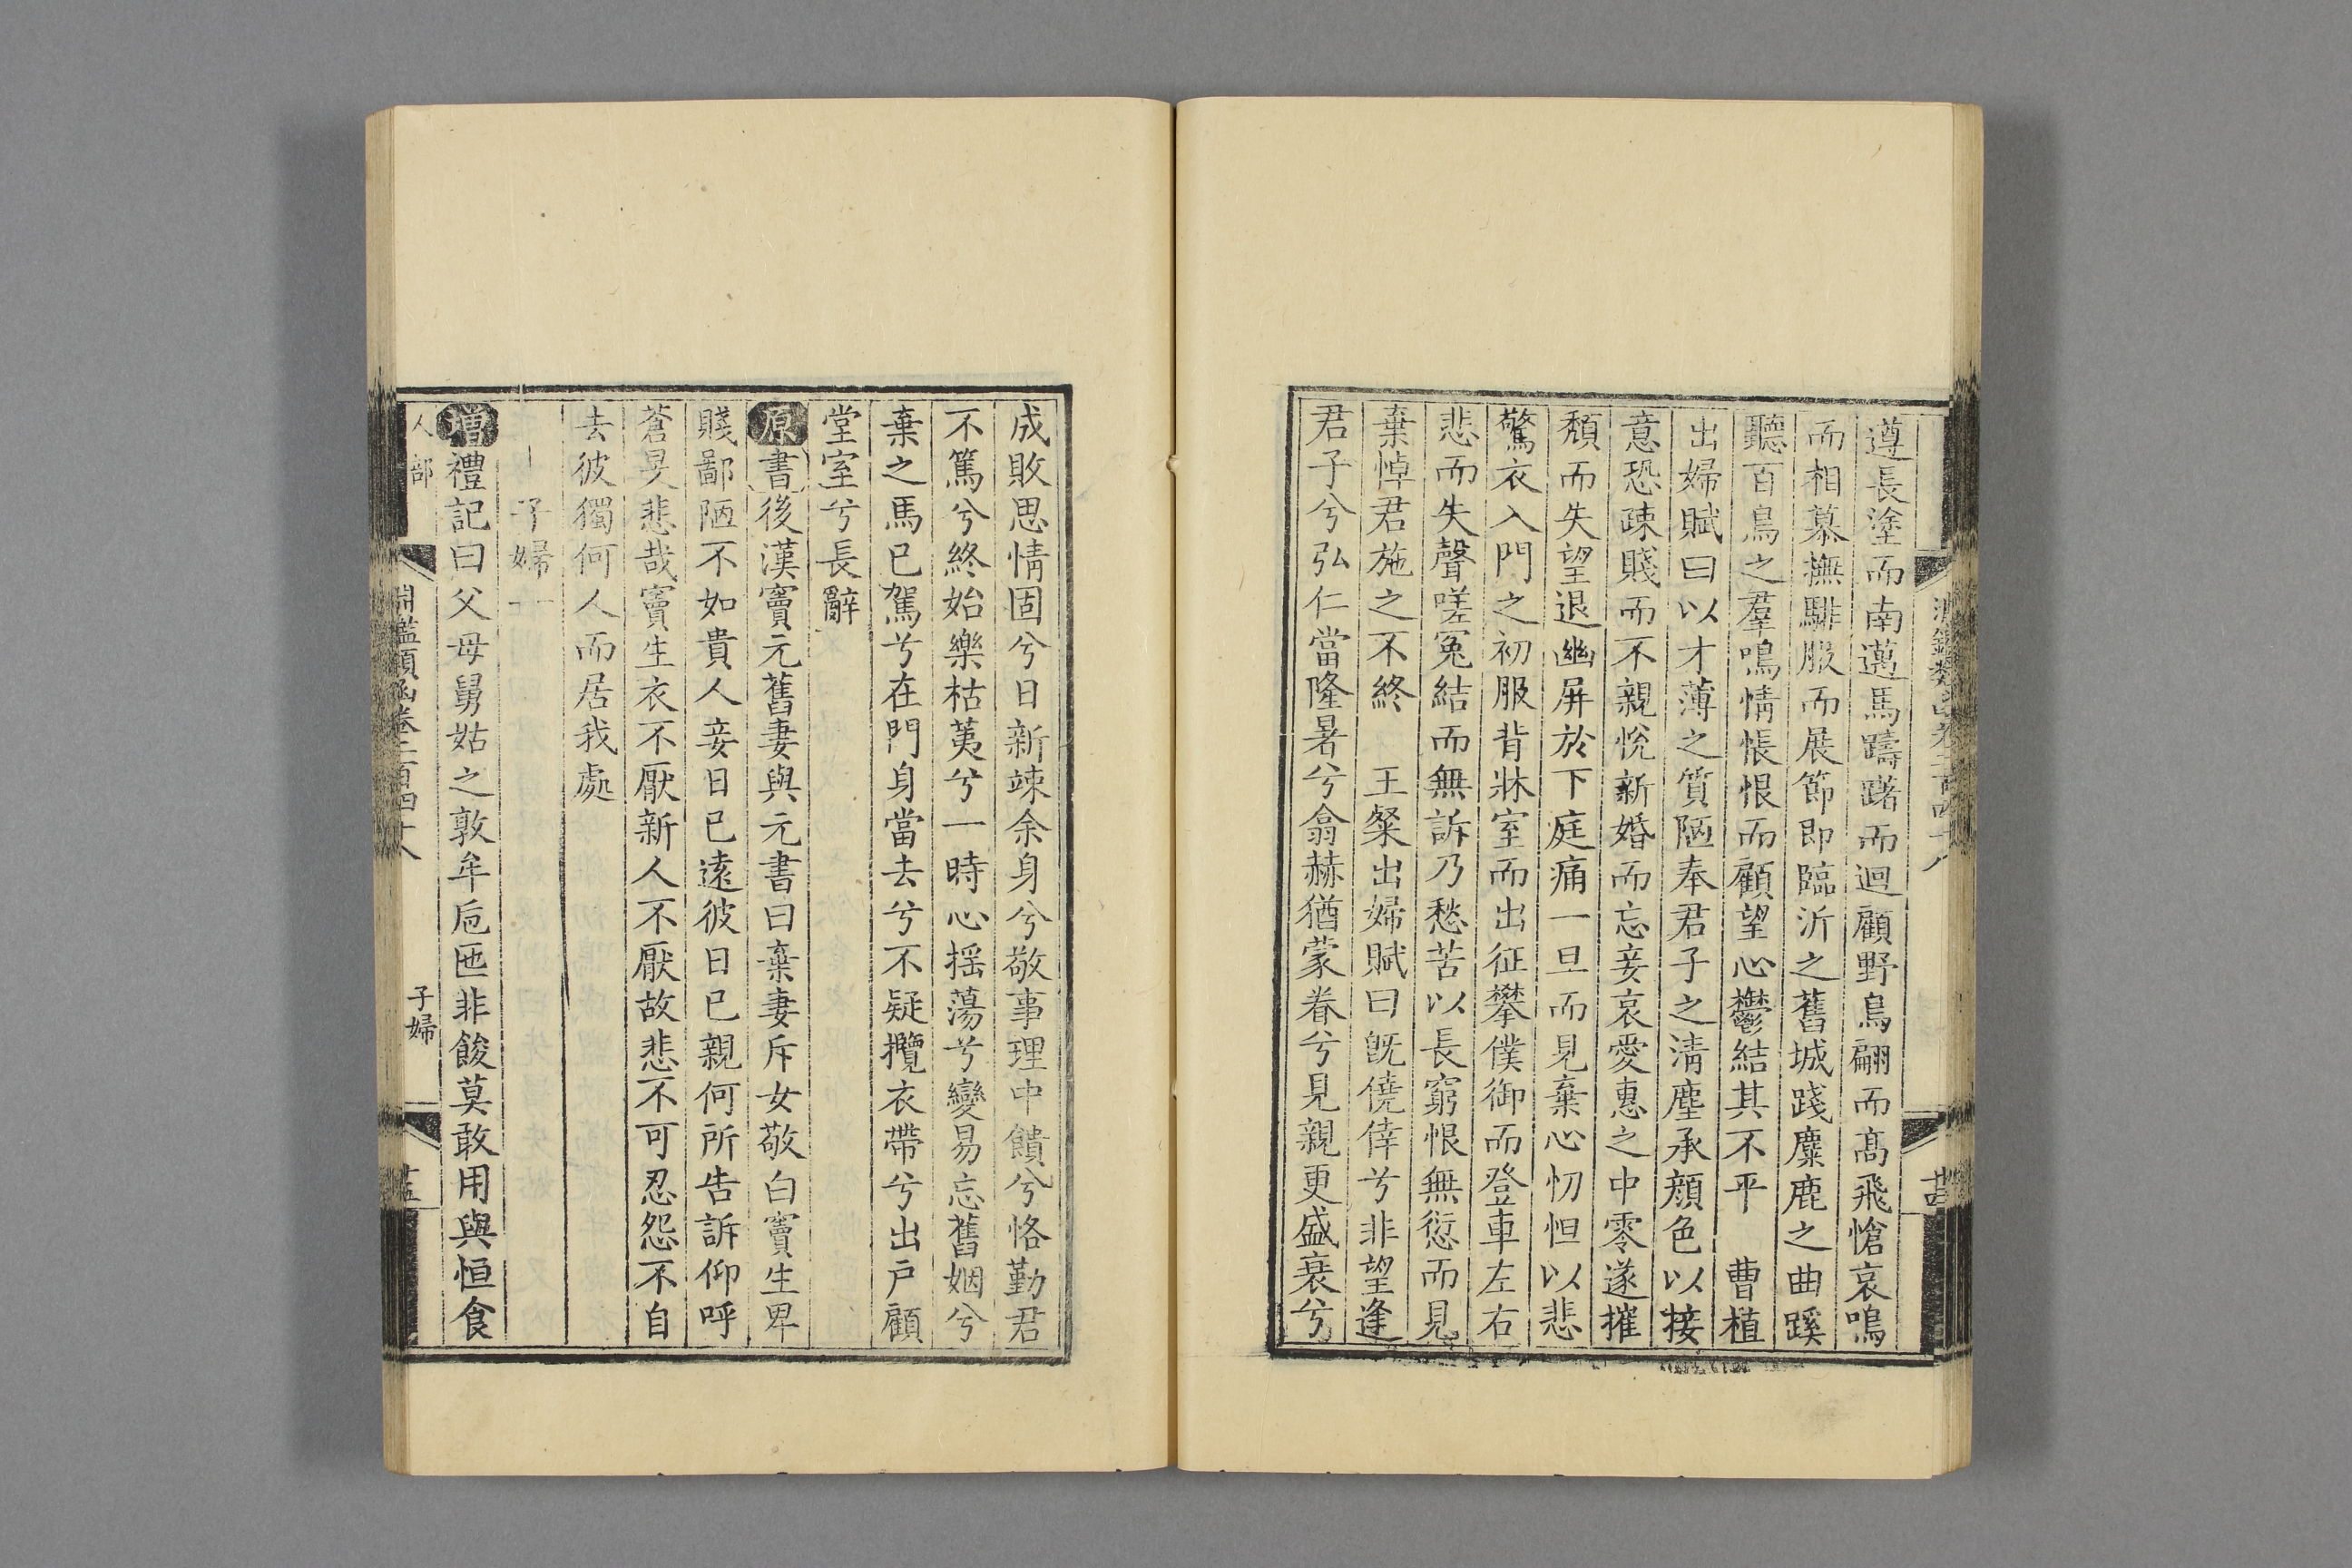 遵長塗而南邁馬躊躇而迴顧野鳥翩而高飛愴哀鳴
而相慕撫騑服而展節即臨沂之舊城踐麋鹿之曲蹊
聽百鳥之羣鳴情悵恨而顧望心鬱結其不平　曹植
出婦賦曰以才薄之質陋奉君子之淸塵承顔色以接
意恐疎賤而不親悅新婚而忘妾哀愛惠之中零遂摧
頹而失望退幽屏於下庭痛一旦而見棄心忉怛以悲
驚衣入門之初服背牀室而出征攀僕御而登車左右
悲而失聲嗟冤結而無訴乃愁苦以長窮恨無愆而見
棄悼君施之不終　王粲出婦賦曰旣僥倖兮非望逢
君子兮弘仁當隆暑兮翕赫猶蒙眷兮見親更盛衰兮
成敗思情固兮日新竦余身兮敬事理中饋兮恪勤君
不篤兮終始樂枯荑兮一時心搖蕩兮變易忘舊姻兮
棄之馬已駕兮在門身當去兮不疑攬衣帶兮出戸顧
堂室兮長辭
原書後漢竇元舊妻與元書曰棄妻斥女敬白竇生卑
賤鄙陋不如貴人妾日已遠彼日已親何所告訴仰呼
蒼旻悲哉竇生衣不厭新人不厭故悲不可忍怨不自
去彼獨何人而居我處
子婦一
增禮記曰父母舅姑之敦牟卮匜非餕莫敢用與恒食
人部
淵鑑類函卷二百四十八
子婦